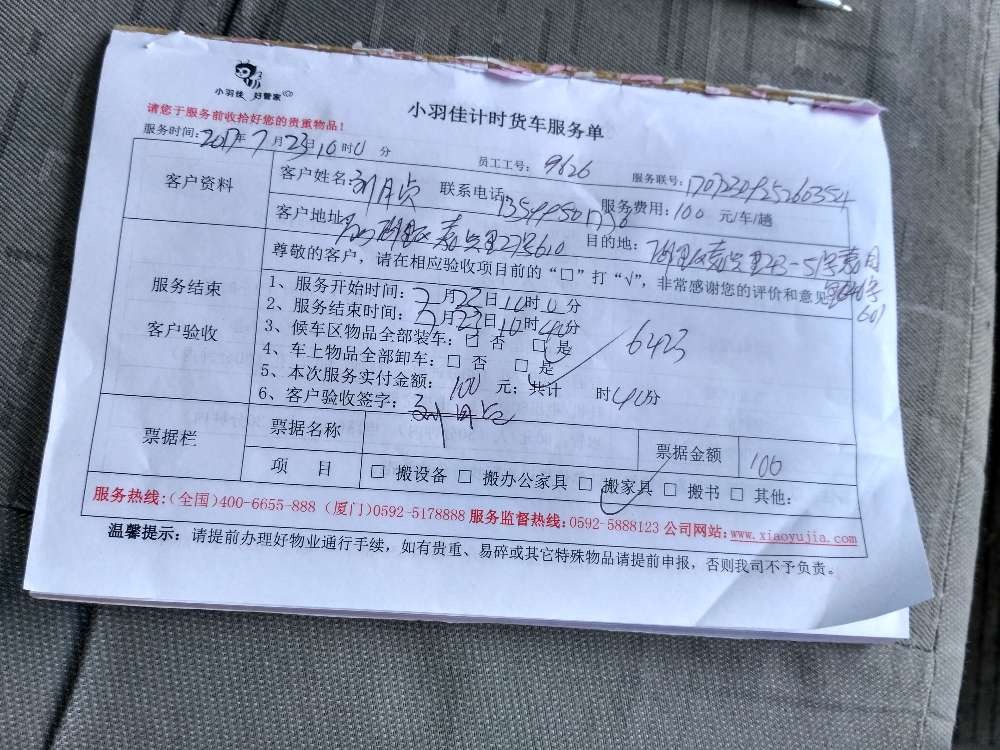 小羽佳 好管家
小羽佳计时货车服务单
请您于服务前收拾好您的贵重物品！
服务时间：2017年7月23日10时0分 员工工号：9626 服务联号：170723092526035
客户资料
客户姓名：刘月贞 联系电话 服务费用：100 元/车/趟
客户地址 目的地：
服务结束
客户验收
尊敬的客户，请在相应验收项目前的“□”打“√”，非常感谢您的评价和意见
601
1、服务开始时间：7月23日10时0分
2、服务结束时间：7月23日10时40分
3、候车区物品全部装车：□ 否 □ 是
6423
4、车上物品全部卸车：□ 否 □ 是
5、本次服务实付金额：100 元；共计 时40分
6、客户验收签字：刘月贞
票据栏
票据名称 票据金额 100
项 目 □ 搬设备 □ 搬办公家具 □ 搬家具 □ 搬书 □ 其他：
服务热线：（全国）400-6655-888（厦门）0592-5178888 服务监督热线：0592-5888123 公司网站：www.xiaoyujia.com
温馨提示：请提前办理好物业通行手续，如有贵重、易碎或其它特殊物品请提前申报，否则我司不予负责。